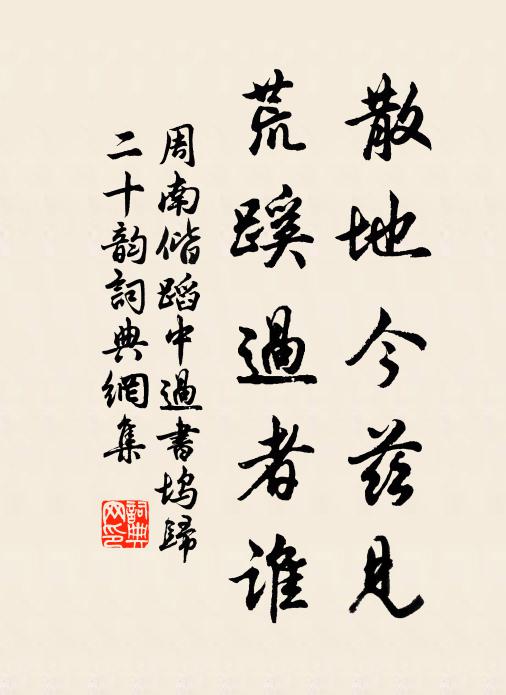 散地今茲見
荒蹊過者誰
周南偕蹈中過書塢歸
二十韵詞典網集
詞典网印